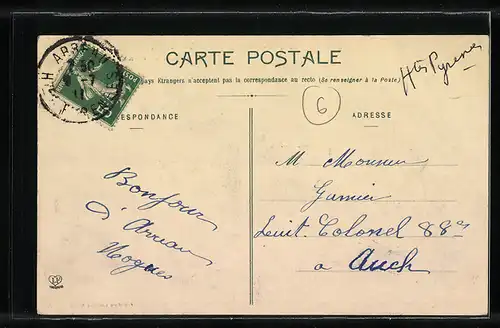 CARTE POSTALE
pays Etrangers n'acceptent pas la correspondance au recto (Se renseigner à la Poste)
Htes Pyrénées
6
RESPONDANCE
ADRESSE
Bonjour
d'Arreau
Nogues
M Monsieur
Garnier
Leuit. Colonel 88e
a Auch